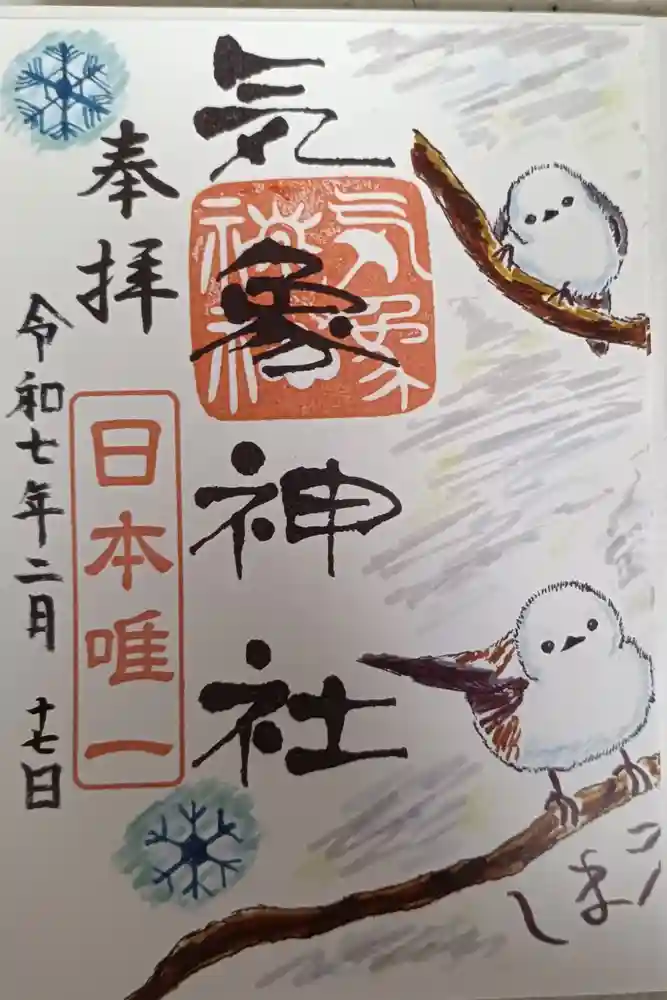 しま
気象神社
気象
神社
奉拝
日本唯一
令和七年二月十七日